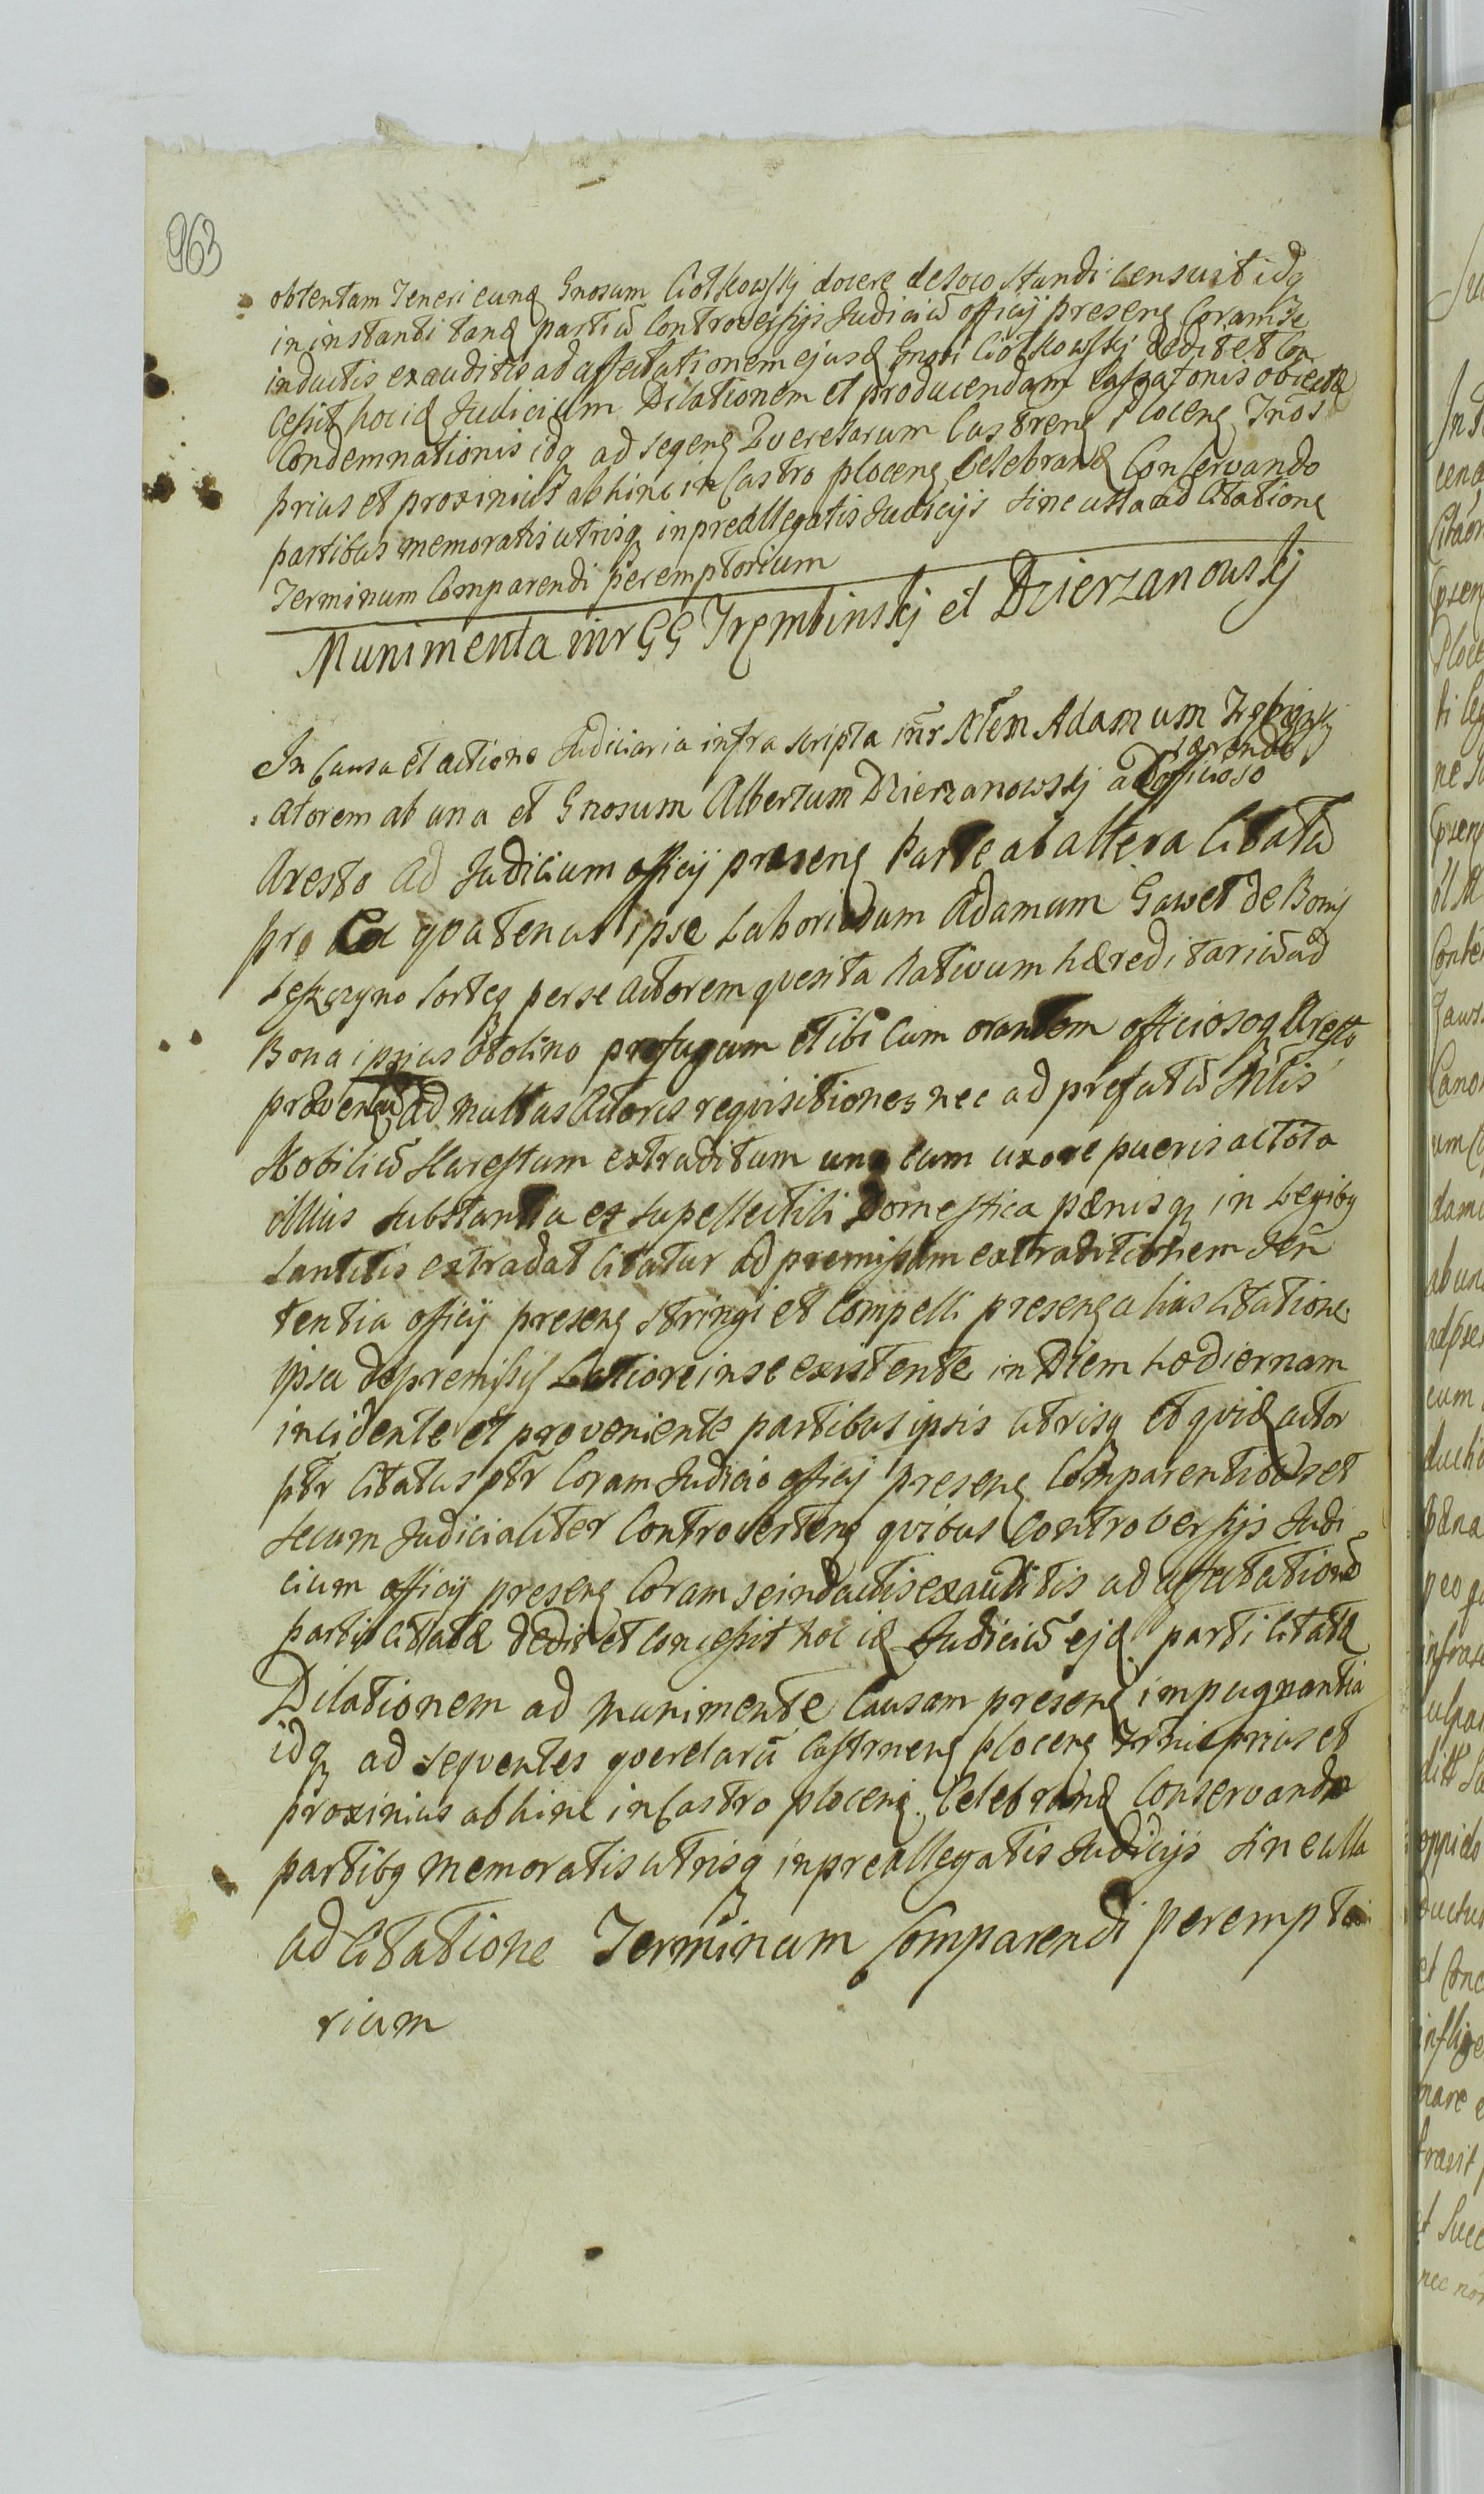 963
obtentam Teneri eunq Gnosum Ciotkowskj docere de loco standi censuit idq
in instanti tanq partiu Controversijs Judiciu officij presenq Coram se
inductis exauditis ad affectationem ejusq Gnosi Ciotkowskj dedit et Con
cessit hoc iq Judicium Dilationem et producendam cassationis obiectæ
Condemnationis idq ad seqenq Querelarum Castrenq Plocenq Tnos
prius et proxinius abhinc in Castro plocenq Celebranq Conservando
partibus memoratis utrisq in preallegatis Judicijs sine ulla ad Citatione
Terminum Comparendi peremptorium
Munimenta inr GG Trembinskj et Dzierzanowskj
In Causa et actione Judiciaria infra scripta inr Adamum
Actorem ab una et Gnosum Albertum Dzierzanowskj ad officioso
Aresto ad Judicium officij presenq Parte ab altera Citatu
pro Eo qvatenus ipse Laboriosum Adamum Gawet de Bonis
sorteq per se Actorem qvesita Nativum hæreditariu ad
Bona ipsius profugum et ibi Cum orantem officiosoq Aresto
ad multas Actoris reqvisitiones nec ad prefatu
Nobiliu Harestum extraditum una cum uxore pueris ac tota
illius substantia et supellectili Domestica pænisq in Legibq
Sancitis extradat Citatur ad premissam extraditionem Sen
tentia officij presenq stringi et Compelli presenq alias Citatione
ipsa de premissis Latiore in se existente in Diem hodiernam
incidente et proveniente partibus ipsis utrisq et qvidq actor
ptr Citatus ptr Coram Judicio officij presenq Comparentibus et
secum Judicialiter Controvertenq qvibus Controversijs Judi
cium officij presenq Coram se inductis exauditis ad affectatione
partis Citatæ dedit et Concessit hoc iq Judiciu ejq parti Citatæ
Dilationem ad munimenta Causam presenq impugnantia
idq ad seqventes qverelaru plocenq prius et
proxinius abhinc in Castro plocenq Celebranq Conservando
partibq memoratis utrisq in preallegatis Judicijs sine ulla
ad Citatione Terminum Comparendi perempto
rium